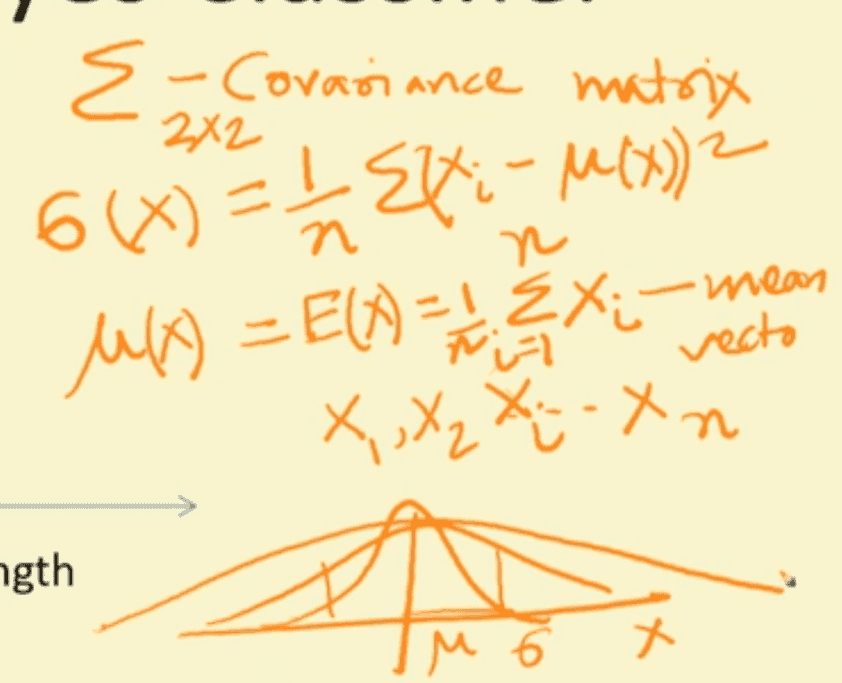 Σ - Covariance matrix
2x2
σ(x) = 1/n Σ(xi - μ(x))²
μ(x) = E(x) = 1/n Σ n i=1 xi - mean
vecto
x1, x2 xi - xn
ngth
μ σ x